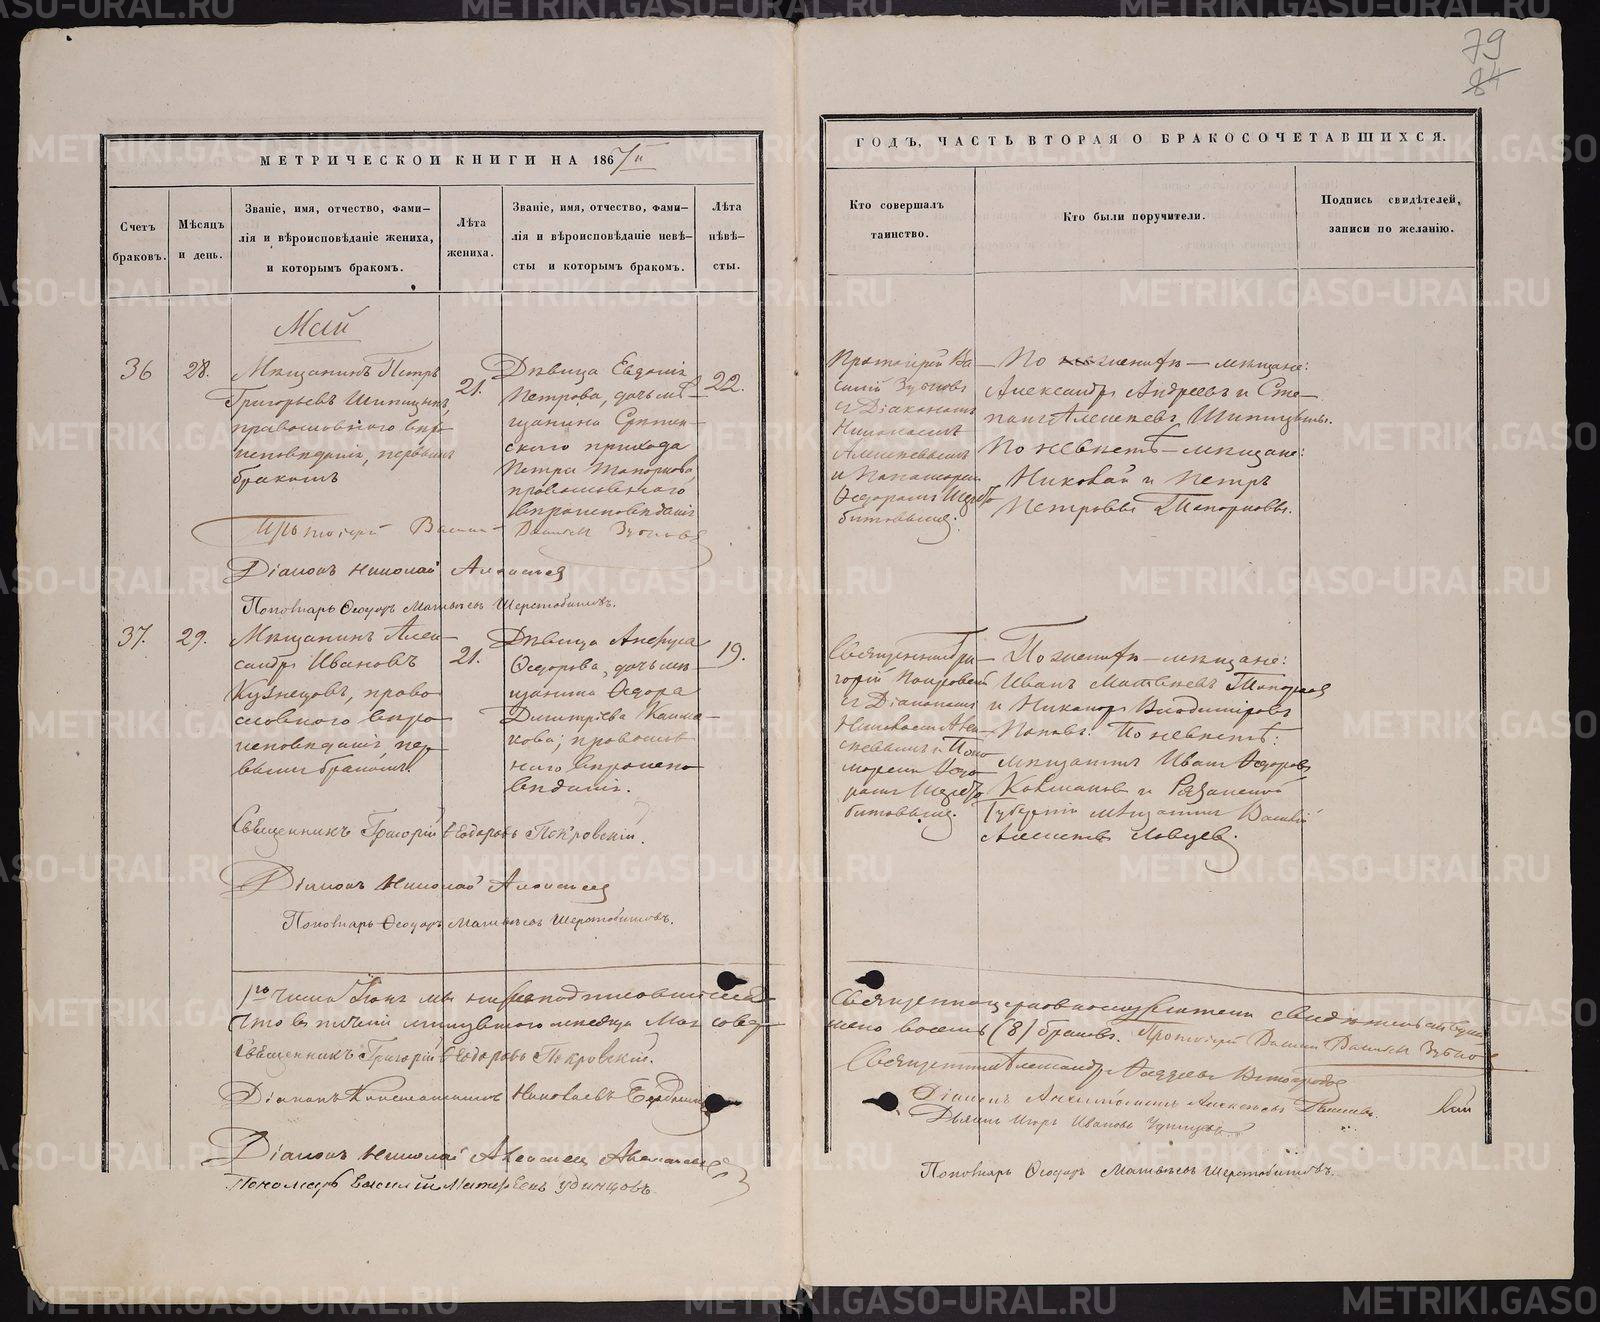 79
84
МЕТРИЧЕСКОЙ КНИГИ НА 1867й
ГОДЪ, ЧАСТЬ ВТОРАЯ О БРАКОСОЧЕТАВШИХСЯ.
Счетъ
браковъ.
Мѣсяцъ
и день.
Званіе, имя, отчество, фами-
лія и вѣроисповѣданіе жениха,
и которымъ бракомъ.
Лѣта
жениха.
Званіе, имя, отчество, фами-
лія и вѣроисповѣданіе невѣ-
сты и которымъ бракомъ.
Лѣта
нѣвѣ-
сты.
Кто совершалъ
таинство.
Кто были поручители.
Подпись свидѣтелей,
записи по желанію.
Май
36
28.
Мѣщанинъ Петръ
Григорьевъ Шипицынъ,
православнаго вѣро
исповѣданія, первымъ
бракомъ
21.
Дѣвица Евдокія
Петрова, дочь мѣ-
щанина Срѣтен-
скаго прихода
Петра Топоркова
православнаго
вѣроисповѣданія
22.
Протоіерей Ва-
силій Зубковъ
съ Діакономъ
Николаемъ
Алексѣевымъ
и Пономаремъ
Ѳедоромъ Шерсто
битовымъ.
По женихѣ - мѣщане:
Александръ Андреевъ и Сте-
панъ Алексѣевъ Шипицыны.
По невѣстѣ - мѣщане:
Николай и Петръ
Петровы Топорковы.
Протоіерей Василій Зубковъ
Діаконъ Николай Алексѣевъ
Пономарь Ѳеодоръ Матвѣевъ Шерстобитовъ.
37.
29.
Мѣщанинъ Алек-
сандръ Ивановъ
Кузнецовъ, право
славнаго вѣро
исповѣданія, пер-
вымъ бракомъ.
21.
Дѣвица Анфуса
Ѳедорова, дочь мѣ-
щанина Ѳедора
Димитріева Калма-
кова; православ
наго вѣроиспо
вѣданія.
19.
Священникъ Гри-
горій Покровскій
съ Діакономъ
Николаемъ Але-
ксѣевымъ и Поно
маремъ Ѳедо
ромъ Шерсто
битовымъ.
По женихѣ - мѣщане:
Иванъ Матвѣевъ Топорковъ
и Никаноръ Владиміровъ
Поповъ. По невѣстѣ:
мѣщанинъ Иванъ Ѳедоровъ
Колмаковъ и Рязанской
Губерніи мѣщанинъ Василій
Алексѣевъ Ловцевъ.
Священникъ Григорій Ѳеодоровъ Покровскій.
Діаконъ Николай Алексѣевъ
Пономарь Ѳеодоръ Матвѣевъ Шерстобитовъ.
1го числа Іюня мы нижеподписавшіеся
Священноцерковнослужители свидѣтельствуемъ
что въ теченіи минувшаго мѣсяца Мая совер-
шено восемь (8) браковъ. Протоіерей Василій Зубковъ
Священникъ Григорій Ѳеодоровъ Покровскій.
Священникъ Александръ
Діаконъ Константинъ Николаевъ
Діаконъ
Діаконъ Николай Алексѣевъ
Дьячекъ Ивановъ
Пономарь Василій Матвѣевъ Удинцовъ.
Пономарь Ѳеодоръ Матвѣевъ Шерстобитовъ.
METRIKI.GASO-URAL.RU